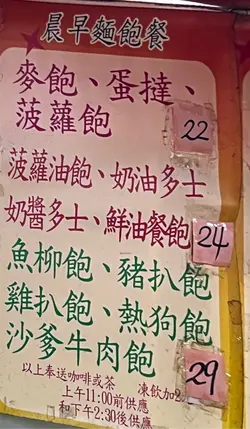 晨早麵飽餐
麥飽、蛋撻、
菠蘿飽
22
菠蘿油飽、奶油多士
奶醬多士、鮮油餐飽
24
魚柳飽、豬扒飽
雞扒飽、熱狗飽
沙爹牛肉飽
29
以上奉送咖啡或茶 凍飲加2
上午11:00前供應
和下午2:30後供應